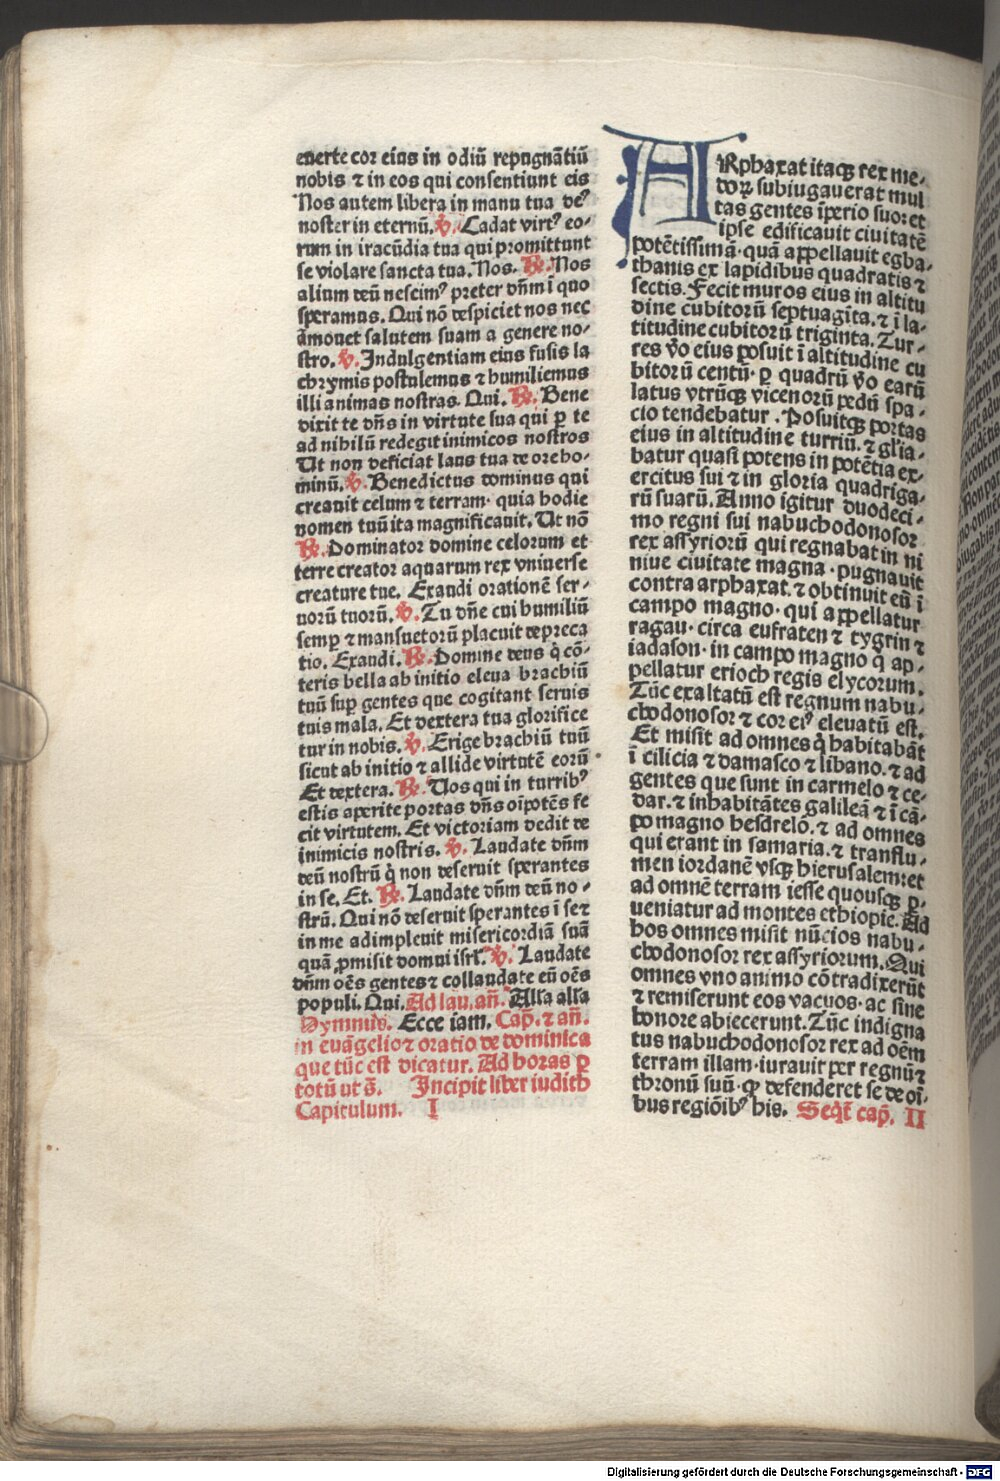 enerte cor eius in odiū repugnātiū
nobis ⁊ in eos qui consentiunt eis
Nos autem libera in manu tua deꝰ
noster in eternū. ℣. Cadat virtꝰ eo-
rum in iracūdia tua qui promittunt
se violare sancta tua. Nos. ℟. Nos
alium deū nescimꝰ preter dn̄m ī quo
speramus. Qui nō despiciet nos nec
amouet salutem suam a genere no-
stro. ℣. Indulgentiam eius fusis la
chrymis postulemus ⁊ humiliemus
illi animas nostras. Qui. ℟. Bene
dixit te dn̄s in virtute sua qui ꝑ te
ad nihilū redegit inimicos nostros
Ut non deficiat laus tua de ore ho-
minū. ℣. Benedictus dominus qui
creauit celum ⁊ terram· quia hodie
nomen tuū ita magnificauit. Ut nō
℟. Dominator domine celorum et
terre creator aquarum rex vniuerse
creature tue. Exaudi orationē ser-
uorū tuorū. ℣. Tu dn̄e cui humiliū
semꝑ ⁊ mansuetorū placuit depreca
tio. Exaudi. ℟. Domine deus q̇ cō-
teris bella ab initio eleua brachiū
tuū suꝑ gentes que cogitant seruis
tuis mala. Et dextera tua glorifice
tur in nobis. ℣. Erige brachiū tuū
sicut ab initio ⁊ allide virtutē eorū
Et dextera. ℟. Uos qui in turribꝰ
estis aperite portas dn̄s oīpotēs fe
cit virtutem. Et victoriam dedit de
inimicis nostris. ℣. Laudate dn̄m
deū nostrū q̇ non deseruit sperantes
in se. Et. ℟. Laudate dn̄m deū no-
strū. Qui nō deseruit sperantes ī se ⁊
in me adimpleuit misericordiā suā
quā ꝓmisit domui isrl̄. ℣. Laudate
dn̄m oēs gentes ⁊ collaudate eū oēs
populi. Qui. Ad lau. an̄. Alla alla
Hymnus. Ecce iam. Cap̄. ⁊ an̄.
in euāgelio ⁊ oratio de dominica
que tūc est dicatur. Ad horas ꝑ
totū ut s̄. Incipit liber iudith
Capitulum. I
ARphaxat itaqꝫ rex me-
doꝝ subiugauerat mul
tas gentes īperio suo: et
ipse edificauit ciuitatē
potētissimā· quā appellauit egba-
thanis ex lapidibus quadratis ⁊
sectis. Fecit muros eius in altitu
dine cubitorū septuagīta. ⁊ ī la-
titudine cubitorū triginta. Tur-
res v̊o eius posuit ī altitudine cu
bitorū centū· ꝑ quadrū v̊o earū
latus vtrūqꝫ vicenorū pedū spa-
cio tendebatur. Posuitqꝫ portas
eius in altitudine turriū. ⁊ gl̄ia-
batur quasi potens in potētia ex-
ercitus sui ⁊ in gloria quadriga-
rū suarū. Anno igitur duodeci-
mo regni sui nabuchodonosor
rex assyriorū qui regnabat in ni
niue ciuitate magna· pugnauit
contra arphaxat. ⁊ obtinuit eū ī
campo magno· qui appellatur
ragau· circa eufraten ⁊ tygrin ⁊
iadason· in campo magno q̇ ap-
pellatur erioch regis elycorum.
Tūc exaltatū est regnum nabu-
chodonosor ⁊ cor eiꝰ eleuatū est.
Et misit ad omnes q̇ habitabāt
ī cilicia ⁊ damasco ⁊ libano. ⁊ ad
gentes que sunt in carmelo ⁊ ce-
dar. ⁊ inhabitātes galileā ⁊ ī cā-
po magno hesdrelō. ⁊ ad omnes
qui erant in samaria. ⁊ transflu-
men iordanē vsqꝫ hierusalem: et
ad omnē terram iesse quousqꝫ ꝑ-
ueniatur ad montes ethiopie. Ad
hos omnes misit nūcios nabu-
chodonosor rex assyriorum. Qui
omnes vno animo cōtradixerūt
⁊ remiserunt eos vacuos· ac sine
honore abiecerunt. Tūc indigna
tus nabuchodonosor rex ad oēm
terram illam· iurauit per regnū ⁊
thronū suū· ꝙ defenderet se de oī-
bus regiōibꝰ his. Seqt̄ cap̄. II
Digitalisierung gefördert durch die Deutsche Forschungsgemeinschaft - DFG